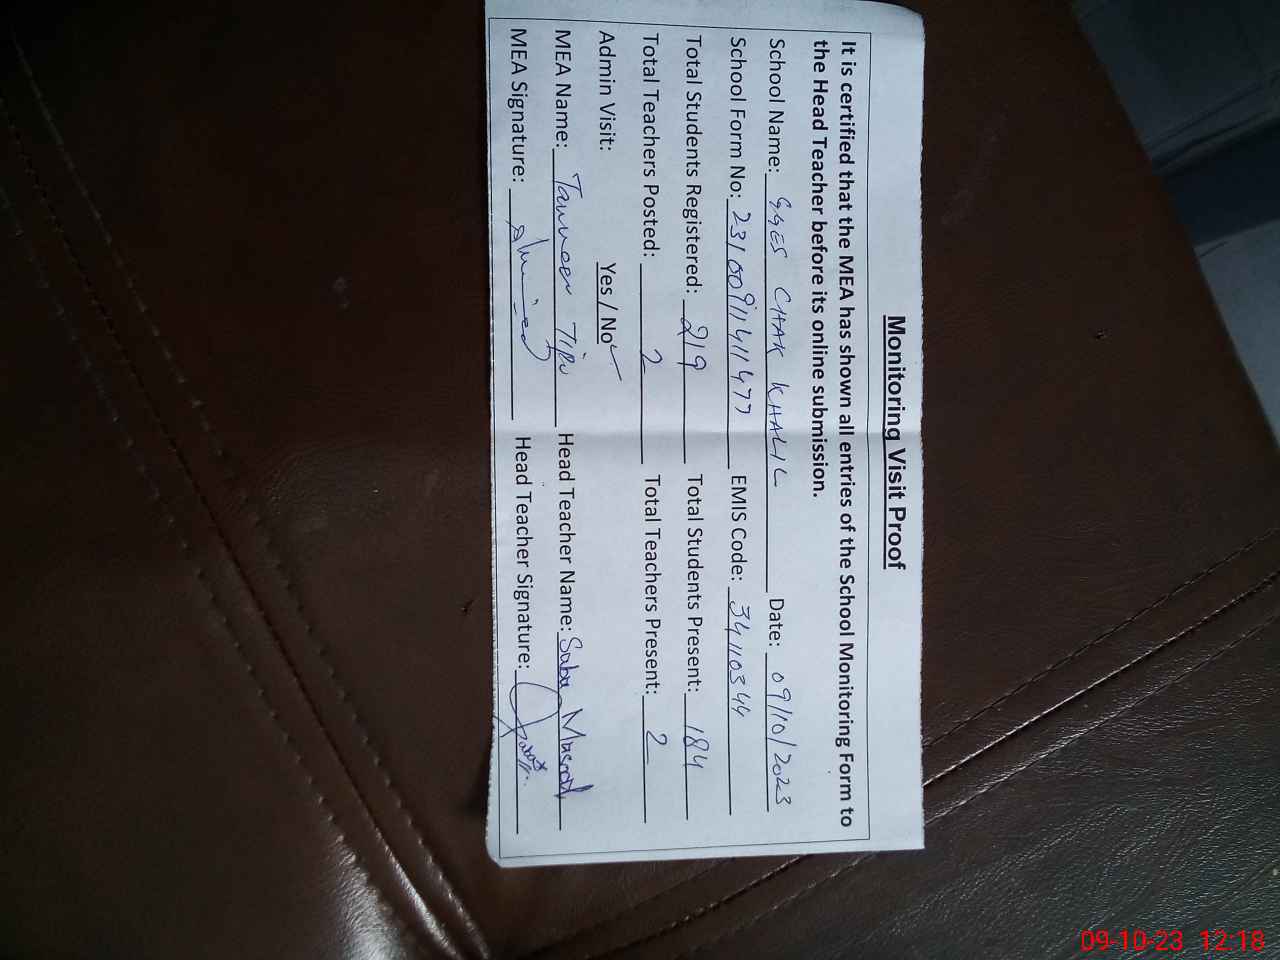 Monitoring Visit Proof
It is certified that the MEA has shown all entries of the School Monitoring Form to
the Head Teacher before its online submission.
School Name: GGES CHAK KHALIL Date: 09/10/2023
School Form No: EMIS Code: 34110344
Total Students Registered: 219 Total Students Present: 184
Total Teachers Posted: 2 Total Teachers Present: 2
Admin Visit: Yes / No ✓
MEA Name: Tanveer Tipu Head Teacher Name: Saba Masood
MEA Signature: Head Teacher Signature:
09-10-23 12:18